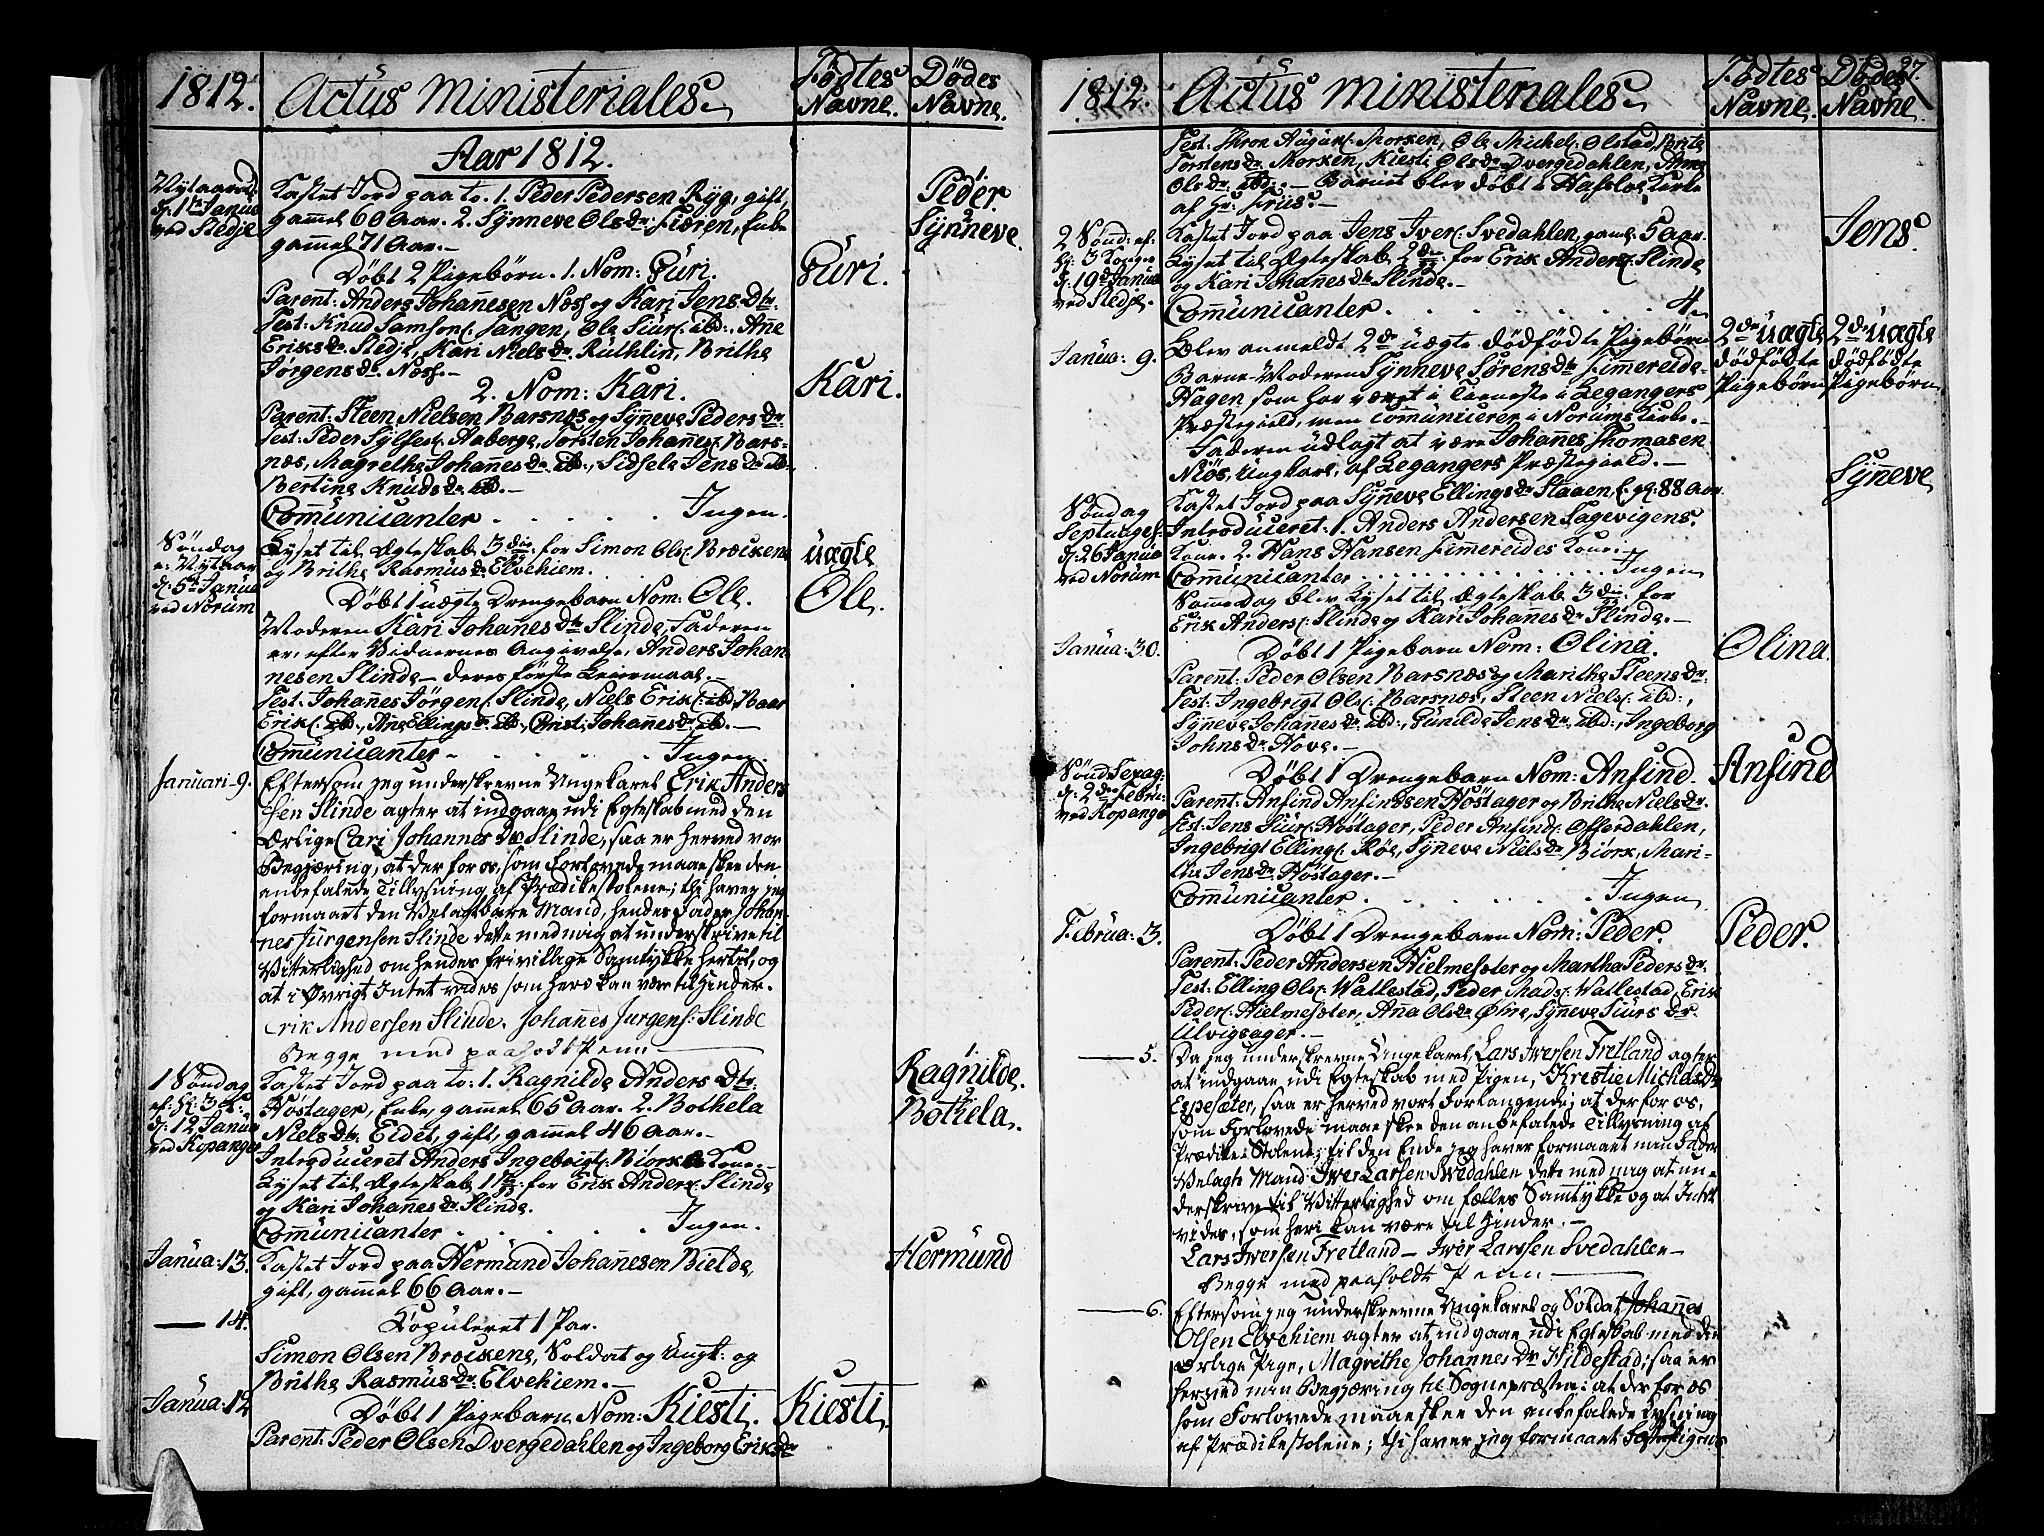 1812. Actus Ministeriales. Födtes Navne. Dödes Navne.
Aar 1812.
Nytaarsd:
d: 1ste Janua
ved Stedje
Kastet Jord paa to. 1. Peder Pedersen Ryg, gift,
gammel 60 Aar. 2. Synneve Olsdr: Fioren, Enke
gammel 71 Aar.
1. Peder
2. Synneve.
Döbt 2 Pigebörn. 1. Nom: Guri. Guri.
Parent: Anders Johannesen Næss og Kari Jens Dtr.
Test: Knud Samsons: Tangen, Ole Siurs: ibd:, Anne
Eriksdr. Stedje, Kari Nielsdr. Ruthlin, Brithe
Jörgensdr. Næss.
2. Nom: Kari. Kari.
Parent: Steen Nielsen Barsnæs og Synneve Pedersdr.
Test: Peder Sylfest: Aaberge, Torsten Johannes: Bars-
næs, Magrethe Johannesdr. ibd:, Sidsele Jensdr. ibd:
Bertine Knudsdr. ibd.
Communicanter . . . . . Ingen.
Söndag
e: Nytaar
d: 5te Janua
ved Norum
Lyset til Ægteskab 3die for Simon Ols: Bræckene
og Brithe Rasmusdr. Elvehiem.
Döbt 1 uægte Drengebarn Nom: Ole.
uægte
Ole.
Moderen Kari Johannes Dtr Slinde, Faderen
er, efter Vidnernes Angivelse, Anders Johan-
nesen Slinde - deres förste Leiermaal.
Test: Johannes Jörgens: Slinde, Niels Eriks: ibd, Baar
Eriks: ibd:, Ane Ellingsdr. ibd:, Christi Johannesdr. ibd.
Communicanter . . . . Ingen.
Januari-9. Eftersom jeg underskrevne Ungekarl Erik Anders
sen Slinde agter at indgaae udi Egteskab med den
Ærlige Cari Johannes Dr Slinde, saa er herved vor
Begjæring, at der for os, som Forlovede maae skee den
anbefalede Tillysning af Prædikestolene; thi haver jeg
formaaet den Velagtbare Mand, hendes Fader Johan-
nes Jürgensen Slinde dette med mig at underskrive til
Vitterlighed om hendes frivillige Samtykke hertil, og
at i Øvrigt Intet vides som heri kan være til Hinder.
Erik Andersen Slinde. Johannes Jurgens: Slinde
Begge med paaholdt Penn
1 Söndag
ef: H: 3 K:
d: 12 Janua
ved Kopanger
Kastet Jord paa to: 1. Ragnilde Anders Dtr.
Höstager, Enke, gammel 65 Aar. 2. Bothela
Niels Dtr. Eidet, gift, gammel 46 Aar.
1. Ragnilde.
2. Bothela.
Introduceret Anders Ingebrigts: Biork Kone.
Lyset til Ægteskab 1ste for Erik Anders: Slinde
og Kari Johannesdr. Slinde.
Communicanter . . . . . Ingen.
Janua: 13. Kastet Jord paa Hermund Johannesen Bielde, Hermund
gift, gammel 66 Aar.
— 14. Copuleret 1 Par.
Simon Olsen Bræckene, Soldat og Ungk: og
Brithe Rasmusdr. Elvehiem.
Janua: 12 Döbt 1 Pigebarn Nom: Kiesti. Kiesti.
Parent: Peder Olsen Dvergedahlen og Ingeborg Eriksdr
1812. Actus Ministeriales. Födtes Navne. Dödes Navne. 97.
Test: Thron August: Morken, Ole Michel: Olstad, Brite
Torstensdr. Morken, Kiesti Olsdr. Dvergedahlen, Anne
Olsdr. ibd. - Barnet blev döbt i Hafsloe Kirke
af Hr:
2 Sönd: ef:
H: 3 Konger
d: 19de Janua
ved Stedje.
Kastet Jord paa Jens Ivers: Svedahlen, gaml: 5 Aar. Jens.
Lyset til Ægteskab 2den for Erik Anders: Slinde
og Kari Johannes Dtr Slinde.
Communicanter . . . . . . 4.
Janua: 9. Blev anmeldt 2de uægte dödfödte Pigebörn
2de uægte dödfödte Pigebörn
2de uægte dödfödte Pigebörn
Barne-Moderen Synneve Sörens Dtr Fimreide-
Hagen som har været i Tieneste i Legangers
Præstegield, men communicerer i Norums Kirke.
Faderen udlagt at være Johannes Thomasen
Niös, Ungkarl, af Legangers Præstegield.
Söndag
Septuages:
d: 26 Janua
ved Norum
Kastet Jord paa Synneve Ellingsdr Staaen, 88 Aar. Synneve
Introduceret: 1. Anders Andersen Lagevigens
Kone. 2. Hans Hansen Fimmereides Kone.
Communicanter . . . . . . Ingen
Samme Dag blev Lyset til Ægteskab 3die for
Erik Anders: Slinde og Kari Johannesdr Slinde.
Janua: 30. Döbt 1 Pigebarn Nom: Olina. Olina.
Parent: Peder Olsen Barsnæs og Marithe Steensdr.
Test: Ingebrigt Ols: Barsnæs, Steen Niels: ibd:,
Synneve Johannesdr. ibd:, Gunilde Jensdr. ibd:, Ingeborg
Johnsdr. Hove.
Sönd: Sexag:
d: 2den Februa:
ved Kopanger
Döbt 1 Drengebarn Nom: Ansind. Ansind
Parent: Ansind Ansindsen Höstager og Brithe Nielsdr.
Test: Jens Siurs: Höstager, Peder Ansinds: Offerdahlen,
Ingebrigt Ellings: Röe, Synneve Nielsdr Biork, Mari-
the Jensdr. Höstager.
Communicanter . . . . . . Ingen
Februa: 3. Döbt 1 Drengebarn Nom: Peder. Peder.
Parent: Peder Andersen Hielmesæter og Martha Pedersdr.
Test: Elling Ols: Wallestad, Peder Mads: Wallestad, Erik
Peders: Hielmesæter, Ana Olsdr Øine, Synneve Siurs Dr
Ulvigsager.
— 5. Da jeg underskrevne Ungekarl, Lars Iwersen Fretland agter
at indgaae udi Egteskab med Pigen, Krestie Michæls Dr
Espesæter, saa er herved vort Forlangende; at der for os,
som Forlovede maae skee den anbefalede Tillysning af
Prædike-Stolene; til den Ende jeg haver formaaet min Fader
Velagte Mand Iwer Larsen Swedahlen dette med mig at un-
derskrive til Vitterlighed om fælles Samtykke og at Intet
vides, som heri kan være til Hinder.
Lars Iwersen Fretland - Iwer Larssen Svedahlen
Begge med paaholdt Penn
— 6. Eftersom jeg underskrevne Ungekarl og Soldat Johannes
Olsen Elvehiem agter at indgaae udi Egteskab med den
ærlige Pige, Magrethe Johannes Dr Hildestad; saa er
herved min Begjæring til Sognepræsten: at der for os
som Forlovede maae skee den anbefalede Lysning
af Prædikestolene; thi haver jeg formaaet